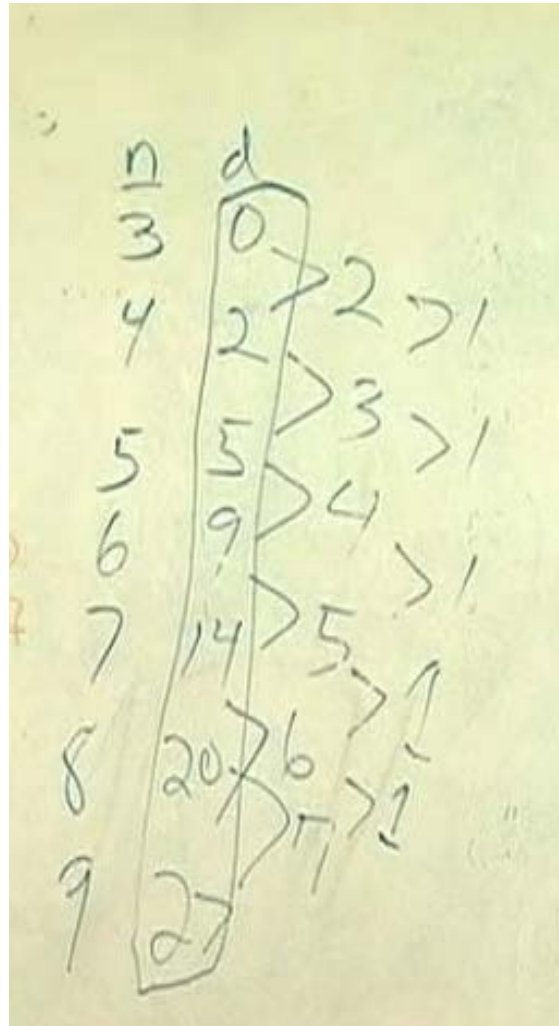 n d
3 0
> 2 > 1
4 2
> 3 > 1
5 5
> 4
6 9 > 1
> 5
7 14 > 1
> 6
8 20 > 1
> 7
9 27